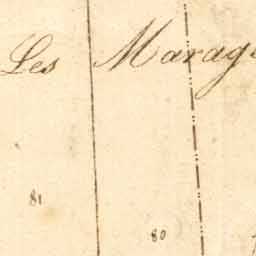 Les Marag
81
80